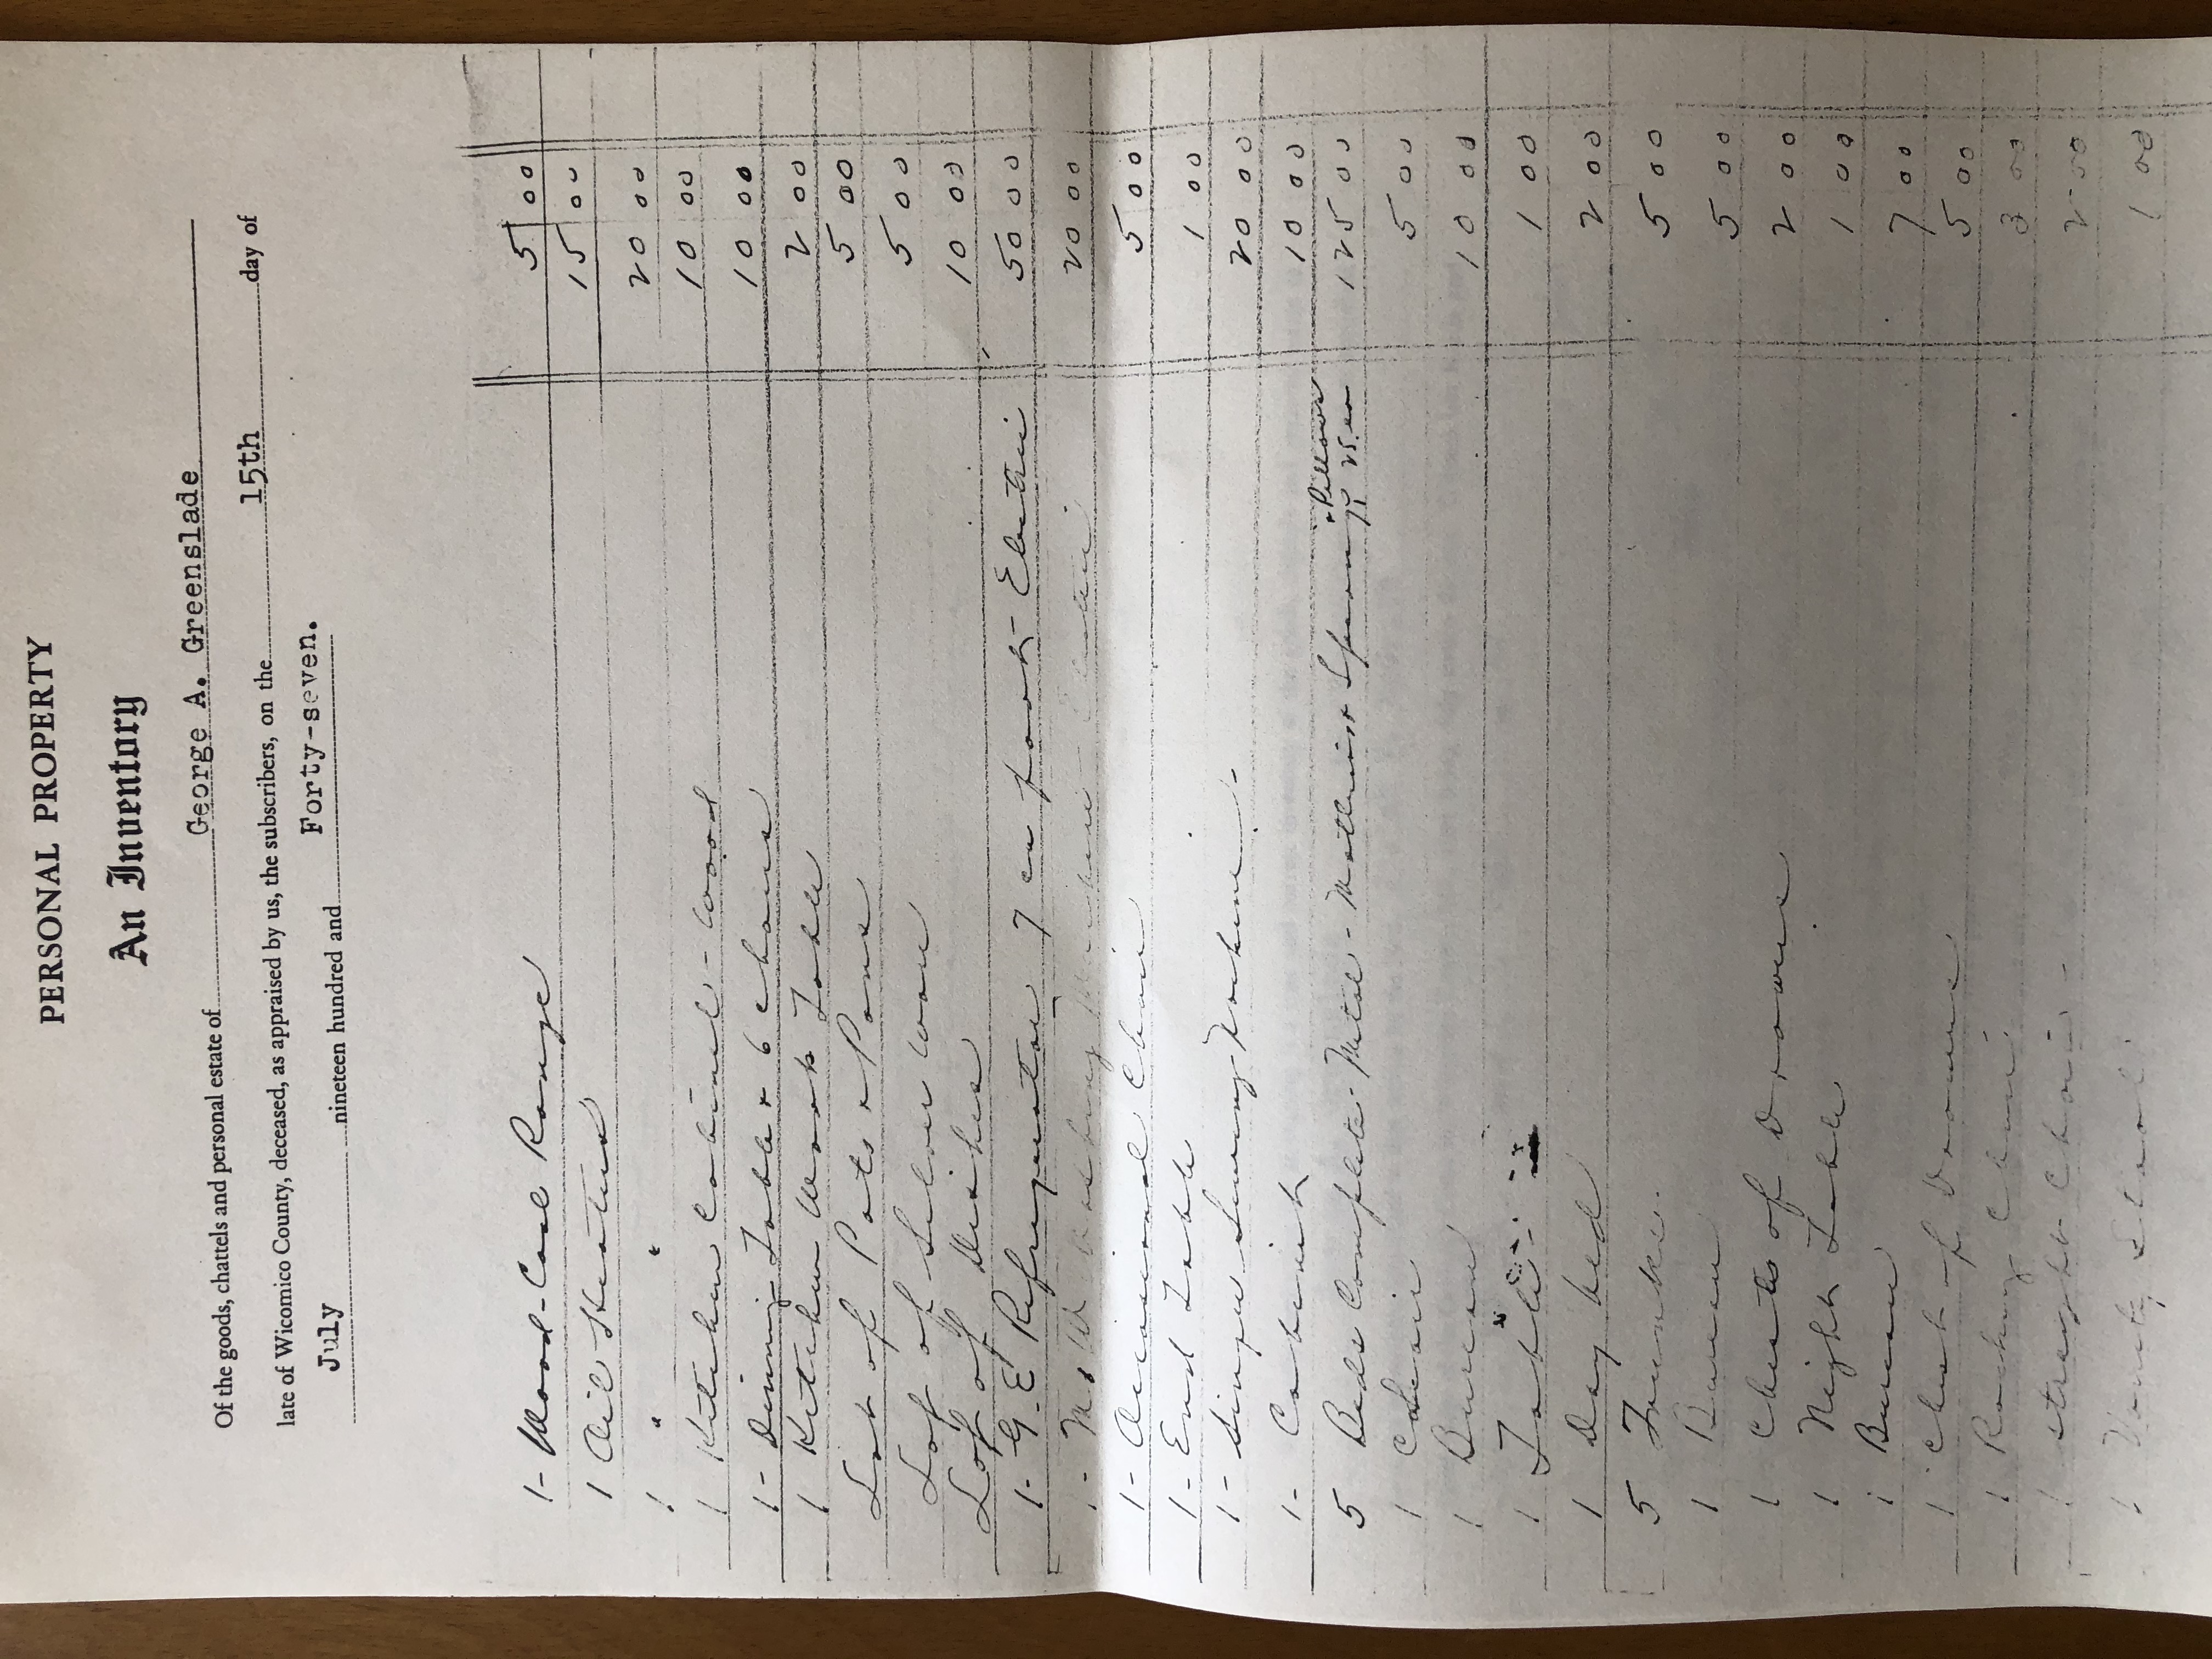 PERSONAL PROPERTY
An Inventory
Of the goods, chattels and personal estate of George A. Greenslade
late of Wicomico County, deceased, as appraised by us, the subscribers, on the 15th day of
July nineteen hundred and Forty-seven.
1- Wood-Coal Range 5 00
1 Oil Heater 15 00
1 " " 20 00
1 Kitchen Cabinet - Wood 10 00
1- Dinning Table & 6 chairs 10 00
1 Kitchen Work Table 2 00
Lot of Pots & Pans 5 00
Lot of Silver ware 5 00
Lot of Dishes 10 00
1- G.E Refrigerator 7 cu foot Electric 50 00
1- M.W Washing Machine Electric 20 00
1- Occasional Chair 5 00
1- End Table 1 00
1- Singer Sewing Machine - 20 00
1- Cabinet 10 00
5 Beds Complete - Metal - Mattress & Spring & Pillows 25. ea 125 00
1 Chair 5 00
1 Bureau 10 00
1 Table - 1 00
1 Day bed 2 00
5 Trunks. 5 00
1 Bureau 5 00
1 Chest of Drawers 2 00
1 Night Table 1 00
1 Bureau 7 00
1 Chest of Drawers 5 00
1 Rocking Chair 3 00
1 straight Chair - 2 00
1 Vanity Stool 1 00